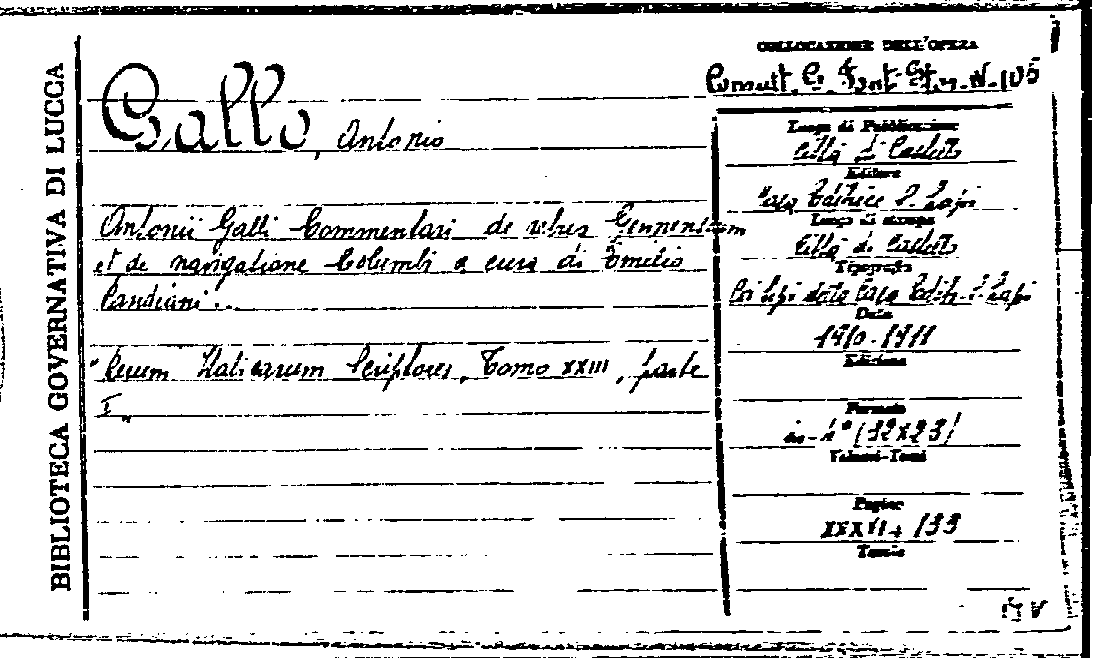 BIBLIOTECA GOVERNATIVA DI LUCCA
COLLOCAZIONE DELL'OPERA
Consult. C. Font. St. N. 105
Gallo, Antonio
Antonii Galli Commentari de rebus Genuensium
et de navigatione Columbi a cura di Emilio
Pandiani..
"Rerum Italicarum Scriptores, Tomo XXIII, parte
I"
Luogo di Pubblicazione
Città di Castello
Editore
Casa Editrice S. Lapi
Luogo di stampa
Città di Castello
Tipografia
Coi tipi della Casa Edit. S. Lapi
Data
1910-1911
Edizione
Formato
in-4° (32x23)
Volumi-Tomi
Pagine
133